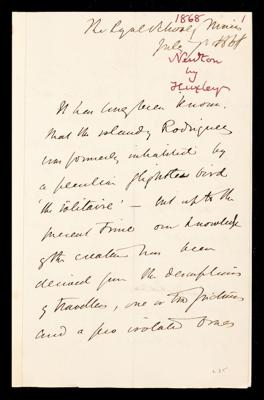 1868 1
The Royal School of Mines
July 7th 1868
Newton
by
Huxley
It has long been known
that the island of Rodriguez
was formerly inhabited by
a peculiar flightless bird
'the Solitaire' – but up to the
present time our knowledge
of the creature has been
derived from the descriptions
of travellers, one or two pictures
and a few isolated bones